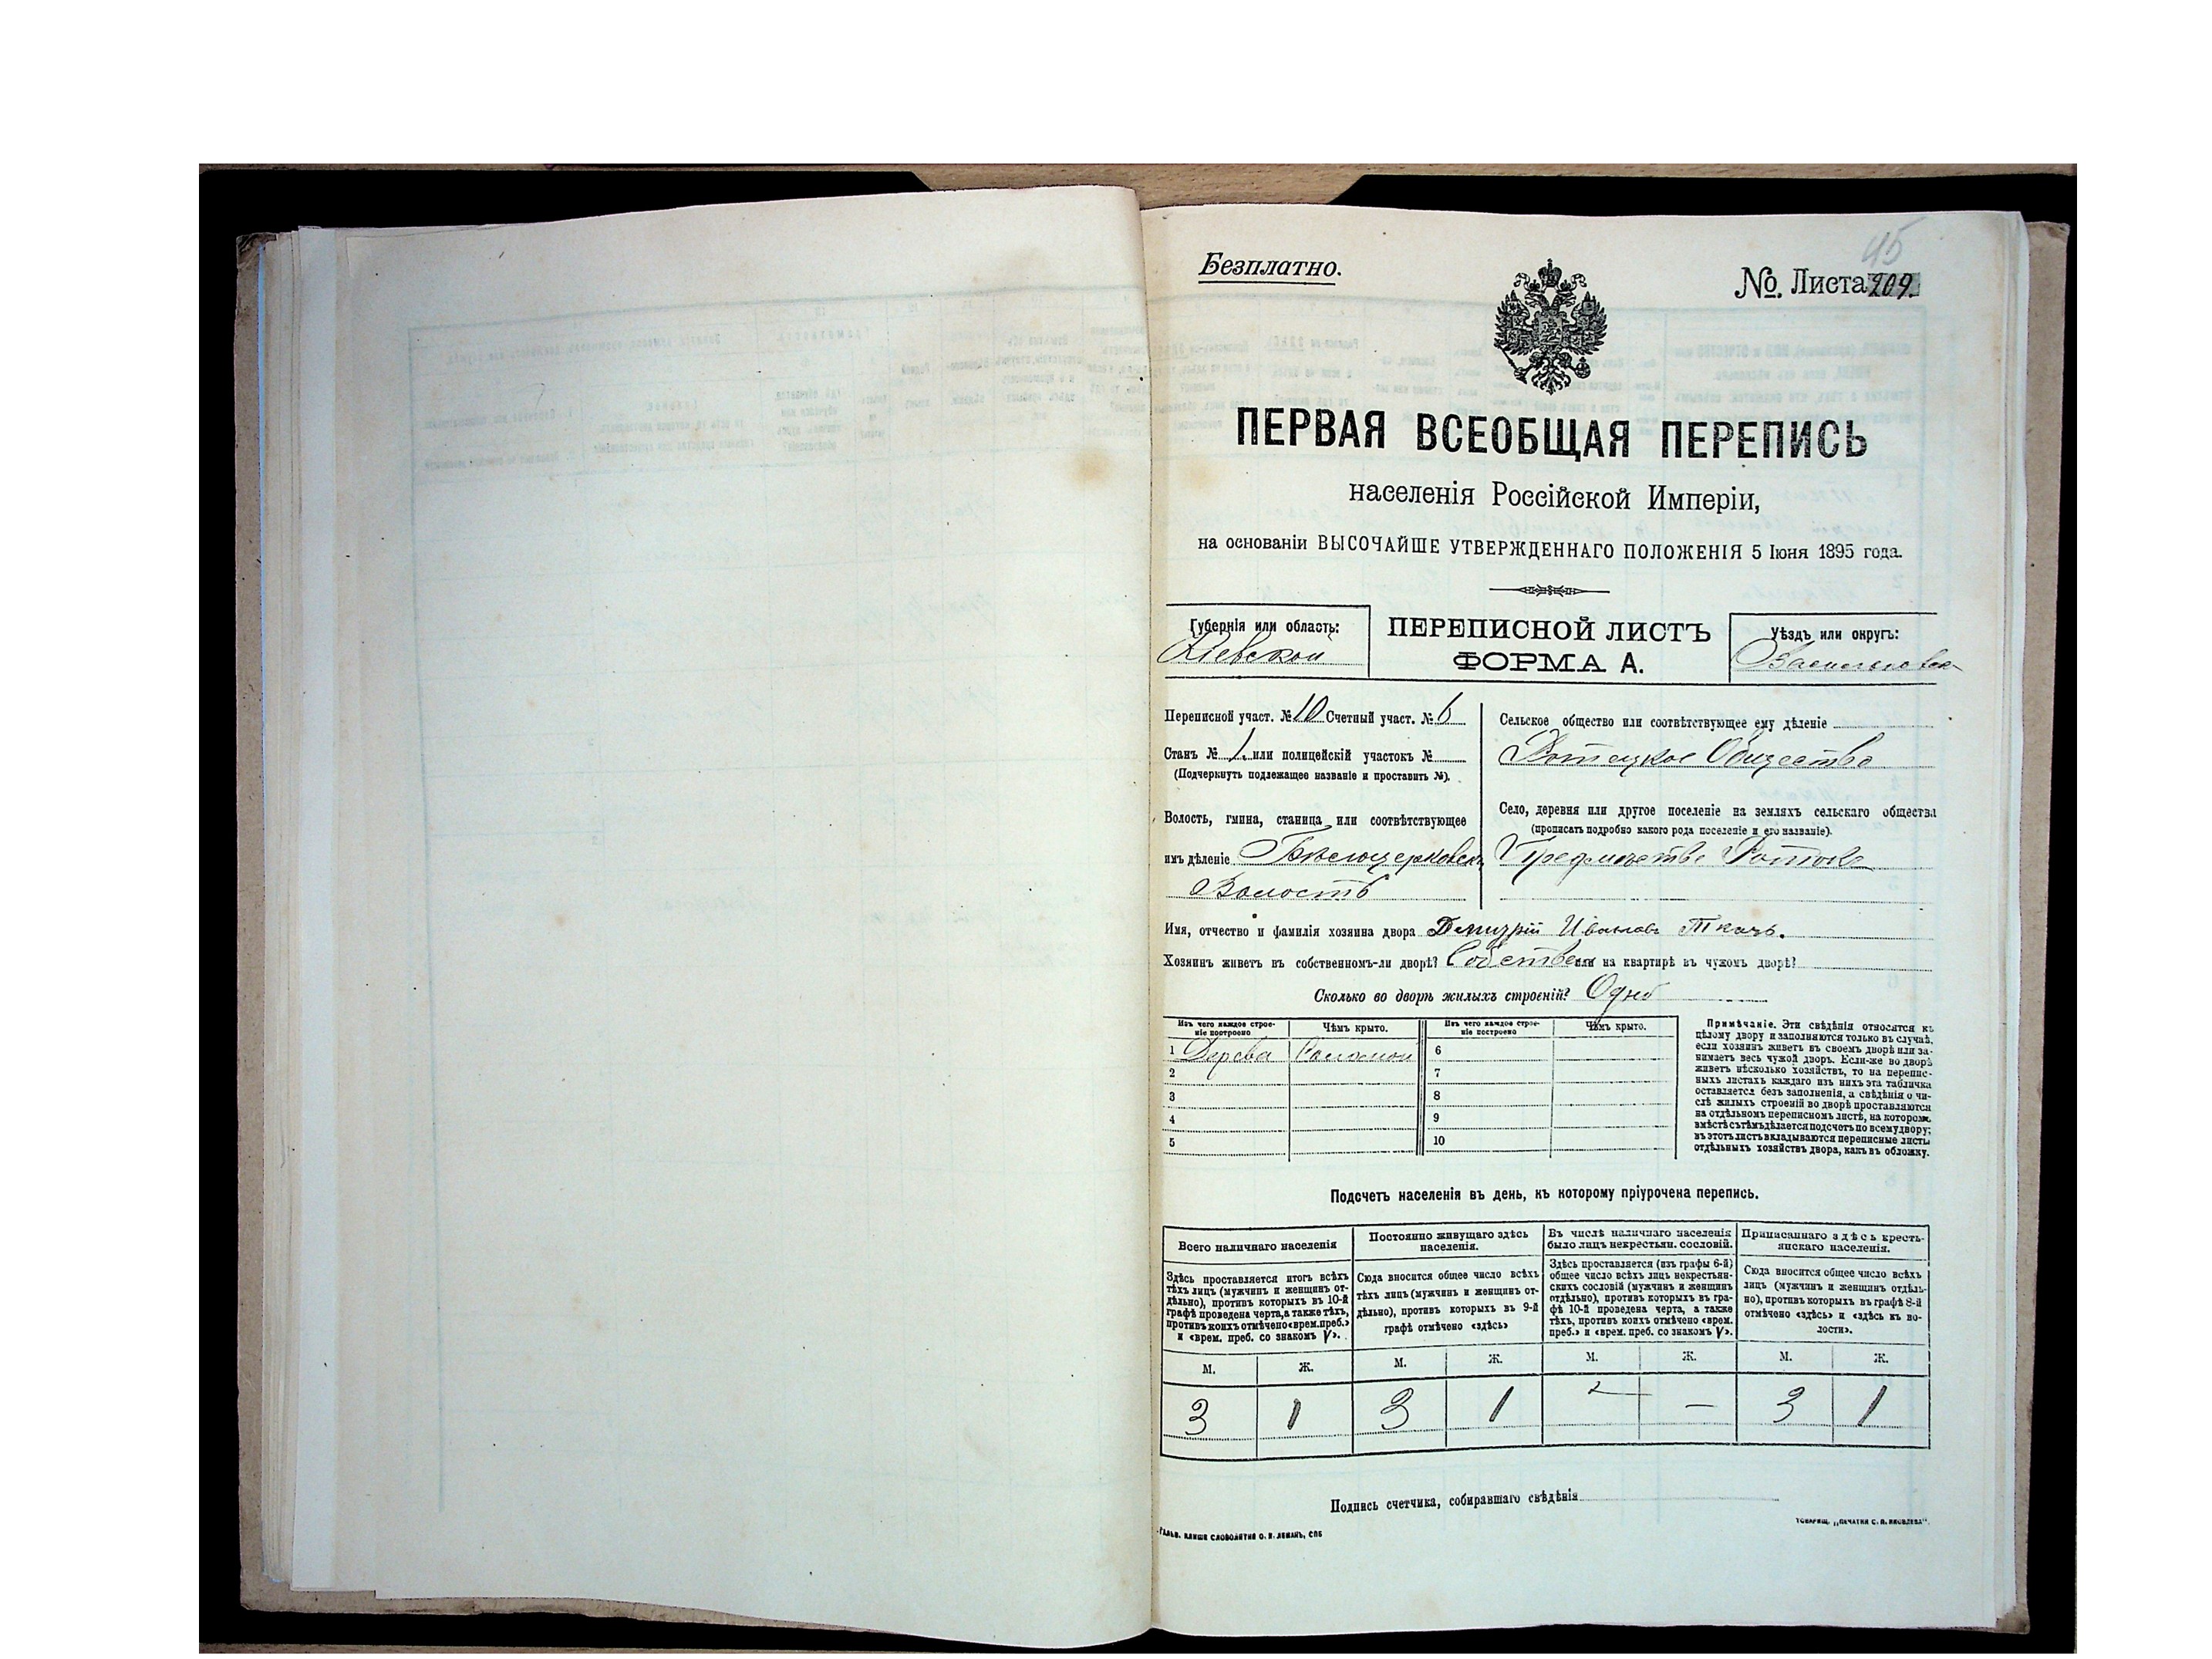 45
Безплатно.
№ Листа 209.
ПЕРВАЯ ВСЕОБЩАЯ ПЕРЕПИСЬ
населенія Россійской Имперіи,
на основаніи ВЫСОЧАЙШЕ УТВЕРЖДЕННАГО ПОЛОЖЕНІЯ 5 Іюня 1895 года.
Губернія или область:
Кіевской
ПЕРЕПИСНОЙ ЛИСТЪ
ФОРМА А.
Уѣздъ или округъ:
Переписной участ. № 10 Счетный участ. № 6
Станъ № 1. или полицейскій участокъ №
(Подчеркнуть подлежащее названіе и проставить №).
Волость, гмина, станица или соотвѣтствующее
имъ дѣленіе Бѣлоцерковск
Волость
Сельское общество или соотвѣтствующее ему дѣленіе
Ротецкое Общество
Село, деревня или другое поселеніе на земляхъ сельскаго общества
(прописать подробно какого рода поселеніе и его названіе).
Предмѣстье Ротокъ
Имя, отчество и фамилія хозяина двора Дмитрій Ивановъ Ткачъ.
Хозяинъ живетъ въ собственномъ-ли дворѣ? Собствен или на квартирѣ въ чужомъ дворѣ?
Сколько во дворѣ жилыхъ строеній? Одно
Изъ чего каждое строе-
ніе построено
Чѣмъ крыто.
Изъ чего каждое строе-
ніе построено
Чѣмъ крыто.
1 Дерева Соломой 6
2 7
3 8
4 9
5 10
Примѣчаніе. Эти свѣдѣнія относятся къ
цѣлому двору и заполняются только въ случаѣ,
если хозяинъ живетъ въ своемъ дворѣ или за-
нимаетъ весь чужой дворъ. Если-же во дворѣ
живетъ нѣсколько хозяйствъ, то на перепис-
ныхъ листахъ каждаго изъ нихъ эта табличка
оставляется безъ заполненія, а свѣдѣнія о чи-
слѣ жилыхъ строеній во дворѣ проставляются
на отдѣльномъ переписномъ листѣ, на которомъ
вмѣстѣ съ тѣмъ дѣлается подсчетъ по всему двору;
въ этотъ листъ вкладываются переписные листы
отдѣльныхъ хозяйствъ двора, какъ въ обложку.
Подсчетъ населенія въ день, къ которому пріурочена перепись.
Всего наличнаго населенія
Здѣсь проставляется итогъ всѣхъ
тѣхъ лицъ (мужчинъ и женщинъ от-
дѣльно), противъ которыхъ въ 10-й
графѣ проведена черта, а также тѣхъ,
противъ коихъ отмѣчено «врем. преб.»
и «врем. преб. со знакомъ V».
Постоянно живущаго здѣсь
населенія.
Сюда вносится общее число всѣхъ
тѣхъ лицъ (мужчинъ и женщинъ от-
дѣльно), противъ которыхъ въ 9-й
графѣ отмѣчено «здѣсь»
Въ числѣ наличнаго населенія
было лицъ некрестьян. сословій.
Здѣсь проставляется (изъ графы 6-й)
общее число всѣхъ лицъ некрестьян-
скихъ сословій (мужчинъ и женщинъ
отдѣльно), противъ которыхъ въ гра-
фѣ 10-й проведена черта, а также
тѣхъ, противъ коихъ отмѣчено «врем.
преб.» и «врем. преб. со знакомъ V».
Приписаннаго здѣсь кресть-
янскаго населенія.
Сюда вносится общее число всѣхъ
лицъ (мужчинъ и женщинъ отдѣль-
но), противъ которыхъ въ графѣ 8-й
отмѣчено «здѣсь» и «здѣсь въ во-
лости».
М. Ж. М. Ж. М. Ж. М. Ж.
3 1 3 1 - — 3 1
Подпись счетчика, собиравшаго свѣдѣнія
ГАЛЬВ. КЛИШЕ СЛОВОЛИТНИ О. И. ЛЕМАНЪ, СПБ
ТОВАРИЩ. „ПЕЧАТНЯ С. П. ЯКОВЛЕВА".